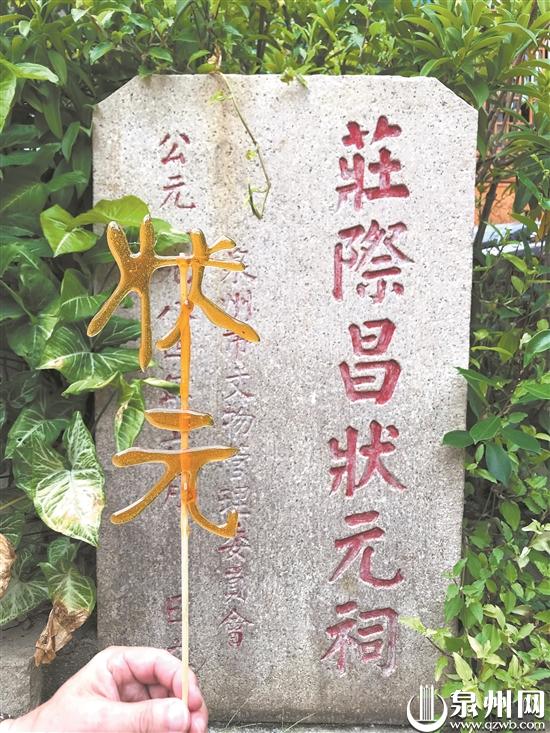 莊際昌狀元祠
泉州市文物管理委員會
公元
日
状元
泉州网
www.qzwb.com